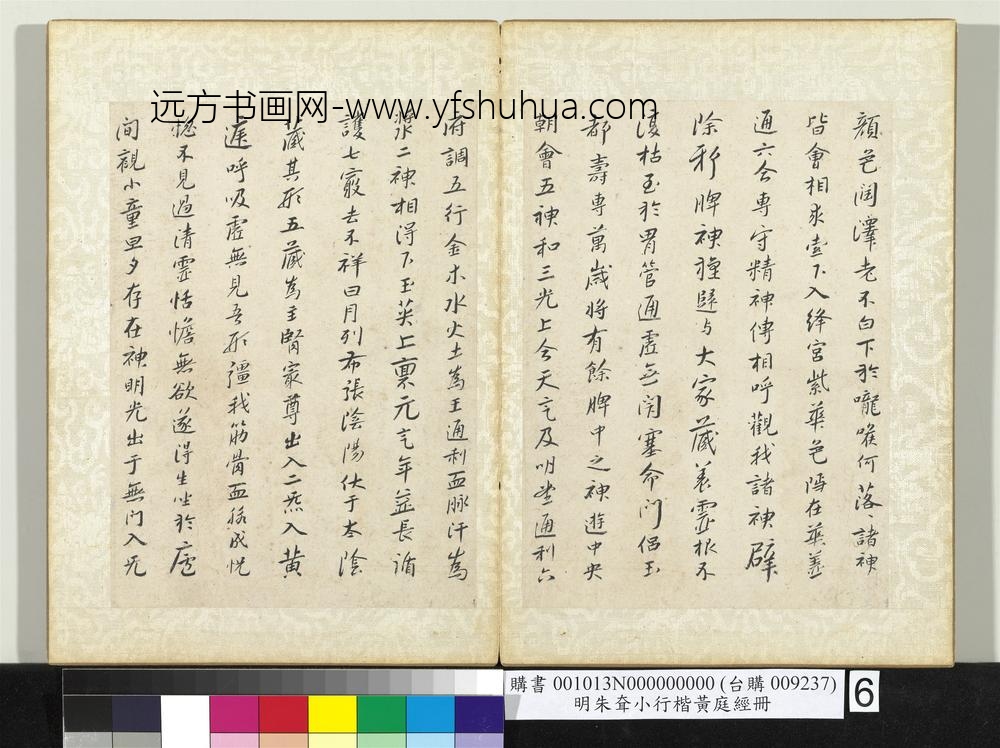 远方书画网-www.yfshuhua.com
顏色潤澤老不白下於嚨喉何落落諸神
皆會相求索下入絳宮紫華色隱在華蓋
通六合專守精神傳相呼觀我諸神辟
除邪脾神還歸与大家藏養靈根不
復枯至於胃管通虛無閉塞命門侶玉
都壽專萬歲將有餘脾中之神遊中央
朝會五神和三光上合天炁及明堂通利六
府調五行金木水火土為王通利血脉汗為
漿二神相得下玉英上稟元炁年益長循
護七竅去不祥日月列布張陰陽伏于太陰
藏其形五藏為主腎最尊出入二炁入黃
庭呼吸虛無見吾形彊我筋骨血脉成恍
惚不見過清靈恬憺無欲遂得生坐於廬
間觀小童旦夕存在神明光出于無門入无
購書 001013N000000000 (台購 009237)
明朱耷小行楷黃庭經冊
6